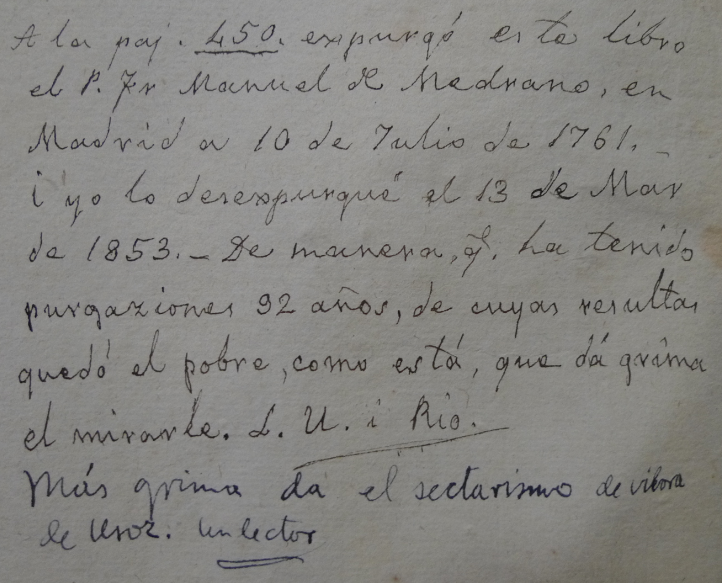 A la paj. 450. expurgó este libro
el P. Fr Manuel de Medrano, en
Madrid a 10 de Julio de 1761. _
i yo lo desexpurgué el 13 de Mar
de 1853. _ De manera, q.e ha tenido
purgaziones 92 años, de cuyas resultas
quedó el pobre, como está, que dá grima
el mirarle. L. U. i Rio.
Más grima da el sectarismo de vibora
de Usoz. Un lector